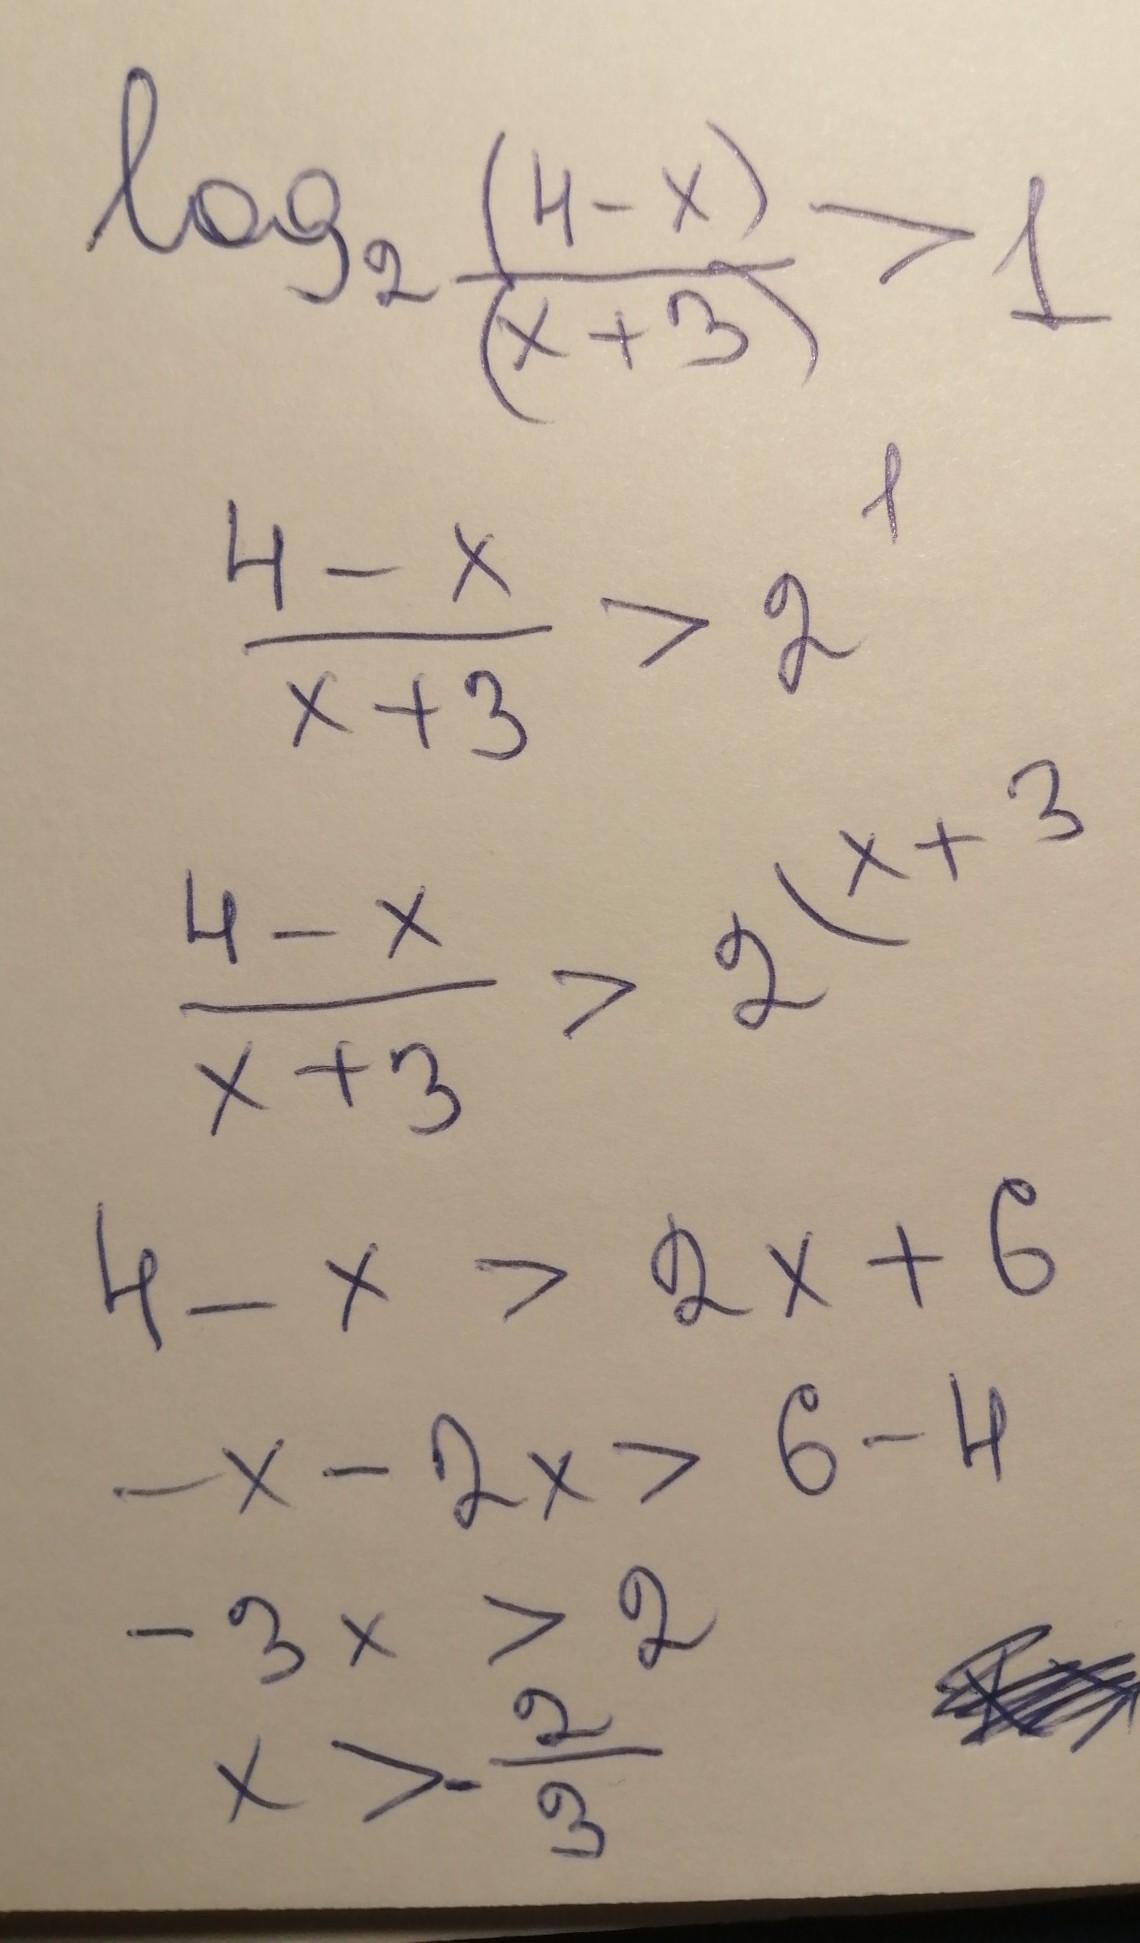 log₂ (4-x)/(x+3) > 1
4-x/x+3 > 2¹
4-x/x+3 > 2(x+3
4-x > 2x+6
-x-2x > 6-4
-3x > 2
x > -2/3